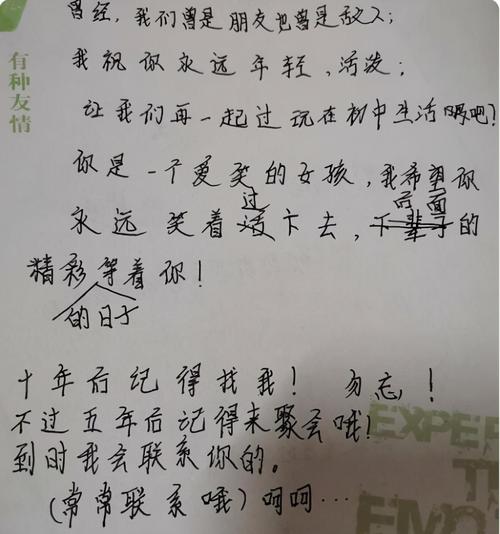 曾经，我们曾是朋友也曾是敌人；
我祝你永远年轻，活泼；
让我们再一起过玩在初中生活吧？
你是一个爱笑的女孩，我希望你
永远笑着过下去，后面的
精彩的日子等着你！
十年后记得找我！勿忘！
不过五年后记得来聚会哦！
到时我会联系你的。
（常常联系哦）呵呵…
有种友情
EXPE
T
EMO